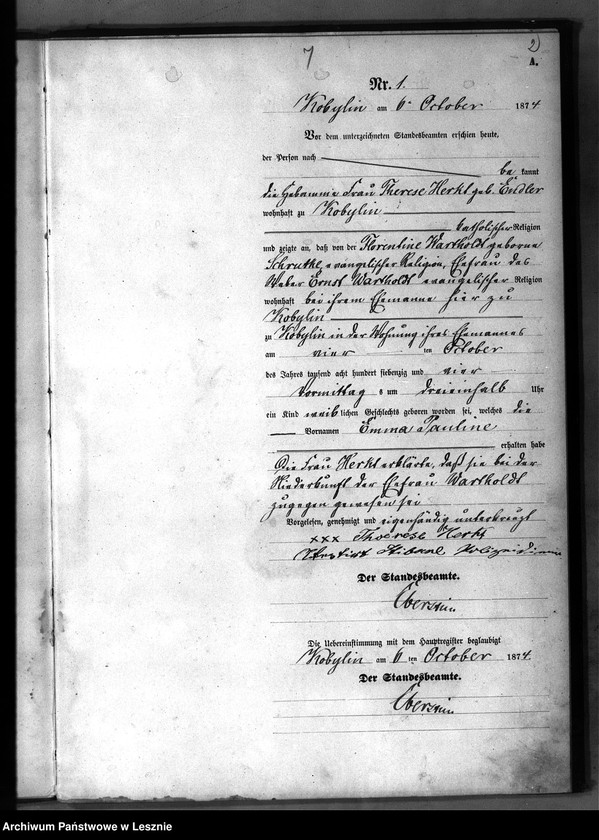 7
2)
A.
Nr. 1.
Kobylin am 6. October 1874
Vor dem unterzeichneten Standesbeamten erschien heute,
der Person nach
be kannt
die Hebamme Frau Therese Herkt geb. Endler
wohnhaft zu Kobylin
katholischer Religion
und zeigte an, daß von der Florentine Wartholdt geborne
Schrutke, evangelischer Religion, Ehefrau des
Weber Ernst Wartholdt evangelischer Religion
wohnhaft bei ihrem Ehemanne hier zu
Kobylin
zu Kobylin in der Wohnung ihres Ehemannes
am vier ten October
des Jahres tausend acht hundert siebenzig und vier
Vormittag s um dreieinhalb Uhr
ein Kind weib lichen Geschlechts geboren worden sei, welches die
Vornamen Emma Pauline
erhalten habe
Die Frau Herkt erklärte, daß sie bei der
Niederkunft der Ehefrau Wartholdt
zugegen gewesen sei
Vorgelesen, genehmigt und eigenhändig unterkreuzt
xxx Therese Herkt
Der Standesbeamte.
Die Uebereinstimmung mit dem Hauptregister beglaubigt
Kobylin am 6 ten October 1874.
Der Standesbeamte.
Archiwum Państwowe w Lesznie